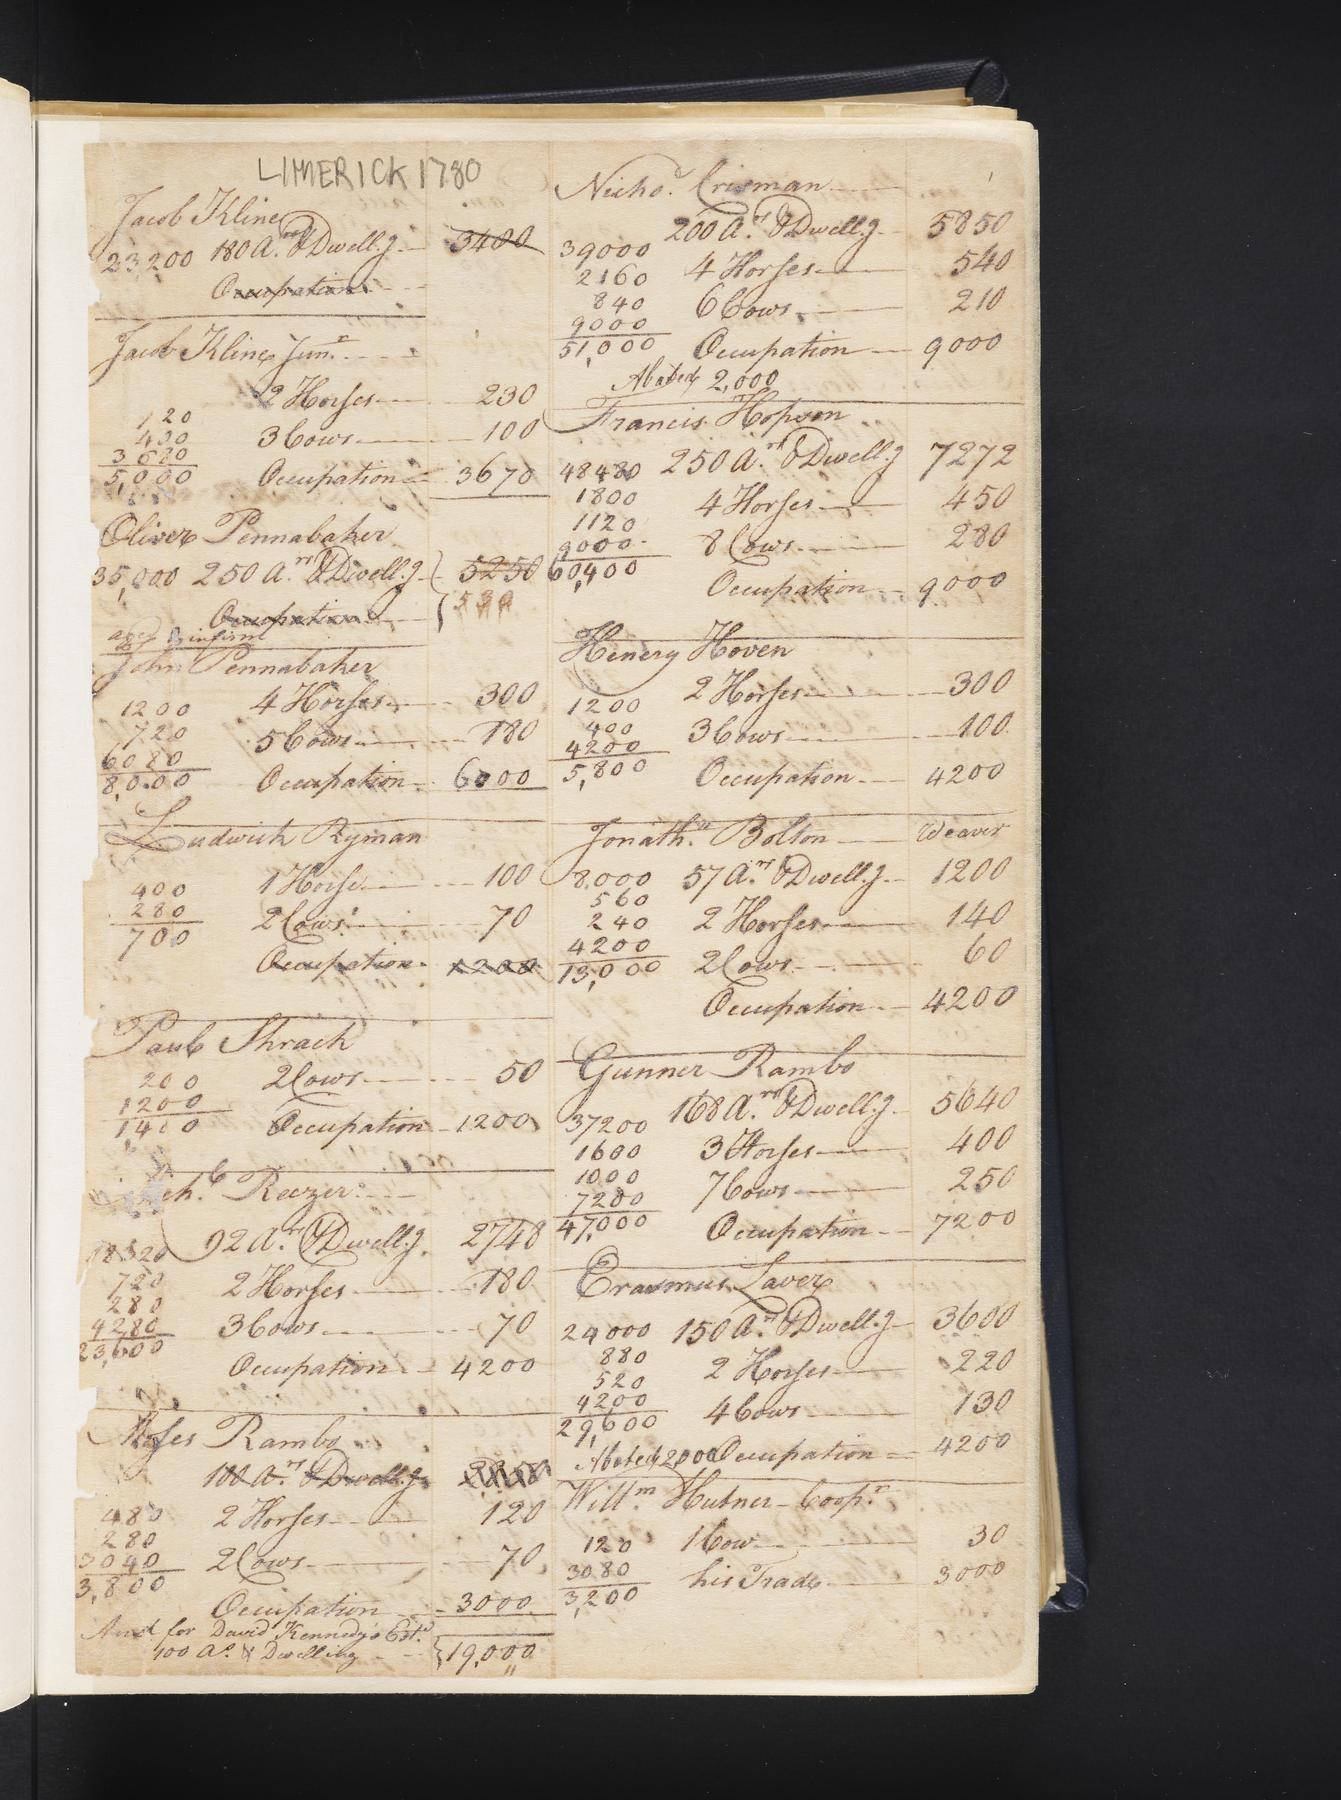 LIMERICK 1780
Jacob Kline
23,200 180 A.rs & Dwell.g 3400
Occupation
Jacob Kline Jun.r
2 Horses 230
120
400 3 Cows 100
3680
5,000 Occupation 3670
Oliver Pennabaker
35,000 250 A.rs & Dwell.g 5250
Occupation 530
aged & infirm
John Pennabaker
1200 4 Horses 300
720 5 Cows 180
6080
8,000 Occupation 6000
Ludwick Ryman
400 1 Horse 100
280 2 Cows 70
700
Occupation 1200
Paul Shrack
200 2 Cows 50
1200
1400 Occupation 1200
Reezer
18320 92 A.rs & Dwell.g 2748
720 2 Horses 180
280
4280 3 Cows 70
23,600
Occupation 4200
Moses Rambo
100 A.rs & Dwell.g
480 2 Horses 120
280
3040 2 Cows 70
3,800
Occupation 3000
And for David Kennedy's Est.
100 A.s & Dwelling 19,000
Nicho.s Crisman
39000 200 A.rs & Dwell.g 5850
2160 4 Horses 540
840 6 Cows 210
9000
51,000 Occupation 9000
Abated 2,000
Francis Hopson
48480 250 A.rs & Dwell.g 7272
1800 4 Horses 450
1120
9000 8 Cows 280
60,400
Occupation 9000
Henery Hoven
1200 2 Horses 300
400 3 Cows 100
4200
5,800 Occupation 4200
Jonath.n Bolton Weaver
8,000 57 A.rs & Dwell.g 1200
560
240 2 Horses 140
4200
13,000 2 Cows 60
Occupation 4200
Gunner Rambo
37200 168 A.rs & Dwell.g 5640
1600 3 Horses 400
1000
7200 7 Cows 250
47,000
Occupation 7200
Erasmus Laver
24000 150 A.rs & Dwell.g 3600
880
520 2 Horses 220
4200
29,600 4 Cows 130
Abated 2000 Occupation 4200
Will.m Hutner Coop.r
120 1 Cow 30
3080 his Trade 3000
3,200